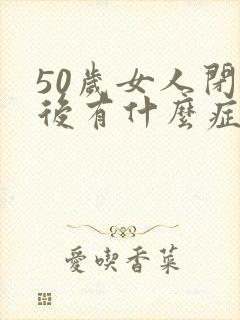 50歲女人閉
後有什麼症
愛喫香菜